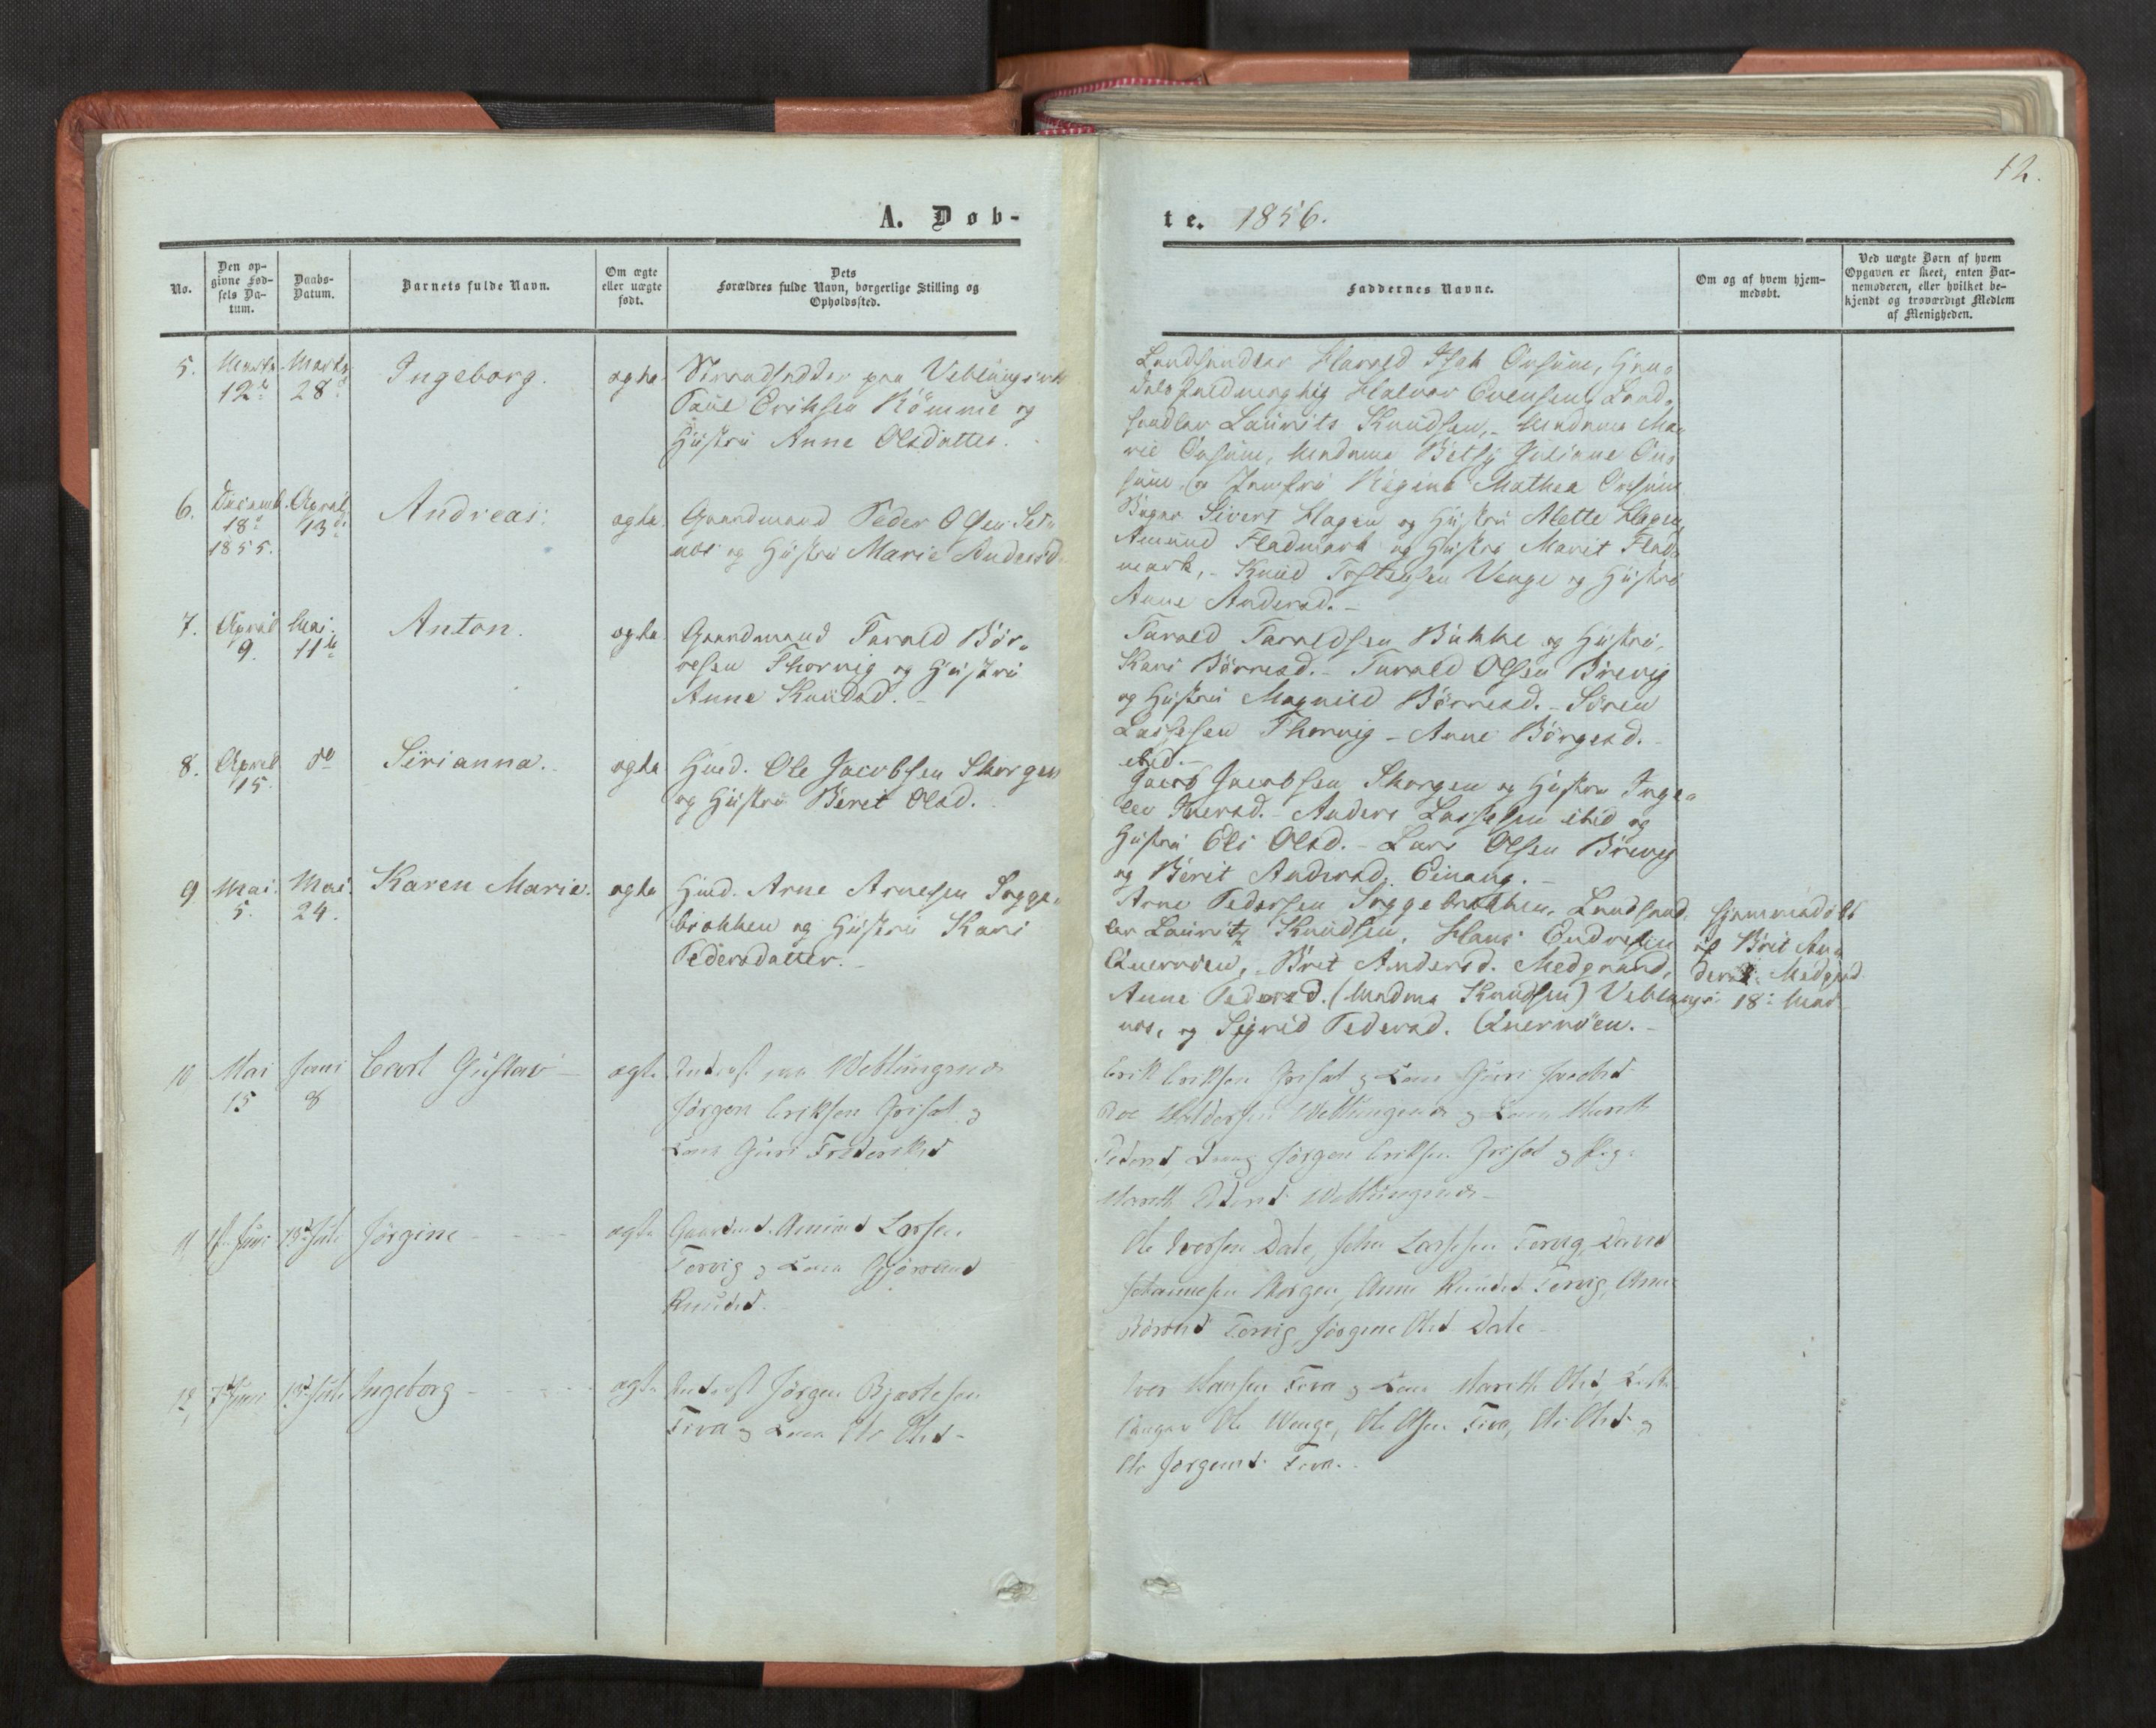 12.
A. Døb-
te. 1856.
No.
Den op-
givne Fød-
sels Da-
tum.
Daabs-
Datum.
Barnets fulde Navn.
Om ægte
eller uægte
født.
Dets
Forældres fulde Navn, borgerlige Stilling og
Opholdssted.
Faddernes Navne.
Om og af hvem hjem-
medøbt.
Ved uægte Børn af hvem
Opgaven er skeet, enten Bar-
nemoderen, eller hvilket be-
kjendt og troværdigt Medlem
af Menigheden.
5.
Marts
12.
Marts
28.
Ingeborg.
ægte.
Strandsidder paa Veblungsnæs
Paul Eriksen Römme og
Hustru Anne Olsdatter.
Landhandler Harald Onsum,
Halvor Evensen, Land-
handler Laurits Knudsen, Madame Ma-
rie Onsum, Madame Betsy Juliane On-
sum, og Jomfru Regine Mathea Onsum
6.
Decemb.
18.
1855.
April
13.
Andreas.
ægte.
Gaardmand Peder Olsen Set-
næs og Hustru Marie Andersd.
Sivert Hagen og Hustru Mette Hagen,
Amund Fladmark og Hustru Marit Flad-
mark, Knud Tostensen Venge og Hustru
Anne Andersd.
7.
April
9.
Mai
11te
Anton.
ægte.
Gaardmand Tarald Bör-
resen Thorvig og Hustru
Anne Knudsd.
Tarald Taraldsen Bakke og Hustru
Kari Börresd. Tarald Olsen Brevig
og Hustru Magnild Börresd. Sören
Lassesen Thorvig Anne Börgesd.
ibid.
8.
April
15.
do
Sirianna.
ægte
Hmd. Ole Jacobsen Skorgen
og Hustru Berit Olsd.
Jacob Jacobsen Skorgen og Hustru Inge-
lev Iversd. Anders Lassesen ibid og
Hustru Eli Olsd. Lars Olsen Brevig
og Berit Andersd. Einang.
9
Mai
5.
Mai.
24.
Karen Marie.
ægte
Hmd. Arne Arnesen Sogge-
brokken og Hustru Kari
Pedersdatter.
Arne Pedersen Soggebrokken, Landhand-
ler Lauritz Knudsen, Hans Endresen
Qvernöen, Brit Andersd. Medgaard,
Anne Pedersd. (Madme Knudsen) Veblungs-
næs, og Sigrid Pedersd. Qvernöen.
hjemmedöbt
af Brit An-
dersd. Medgrd.
18. Mai
10
Mai
15
Juni
8
Carl Gustav
ægte
Inderst paa Weblungsnæs
Jörgen Eriksen Griset og
Kone Guri Frederiksd
Erik Eriksen Griset og Kone Guri Jacobsd
Haldorsen Weblungsnæs og Kone Mareth
Pedersd, Jörgen Eriksen Griset og Pige
Mareth Weblungsnæs
11
1 Juni
13 Juli
Jörgine
ægte
Gaardmd. Amund Larsen
Torvig og Kone
Knudsd.
Ole Iversen Dale, John Lassesen Torvig,
Johannesen Skorgen, Anne Knudsd Torvig, Anne
Torvig, Jörgine Olsd Dale
12,
7 Juni
13 Juli
Ingeborg
ægte
Inderst Jörgen Bjartesen
Fiva og Kone Olsd
Iver Hansen Fiva og Kone Mareth Olsd,
Ole Wenge, Ole Olsen Fiva, Olsd og
Jörgensd Fiva.